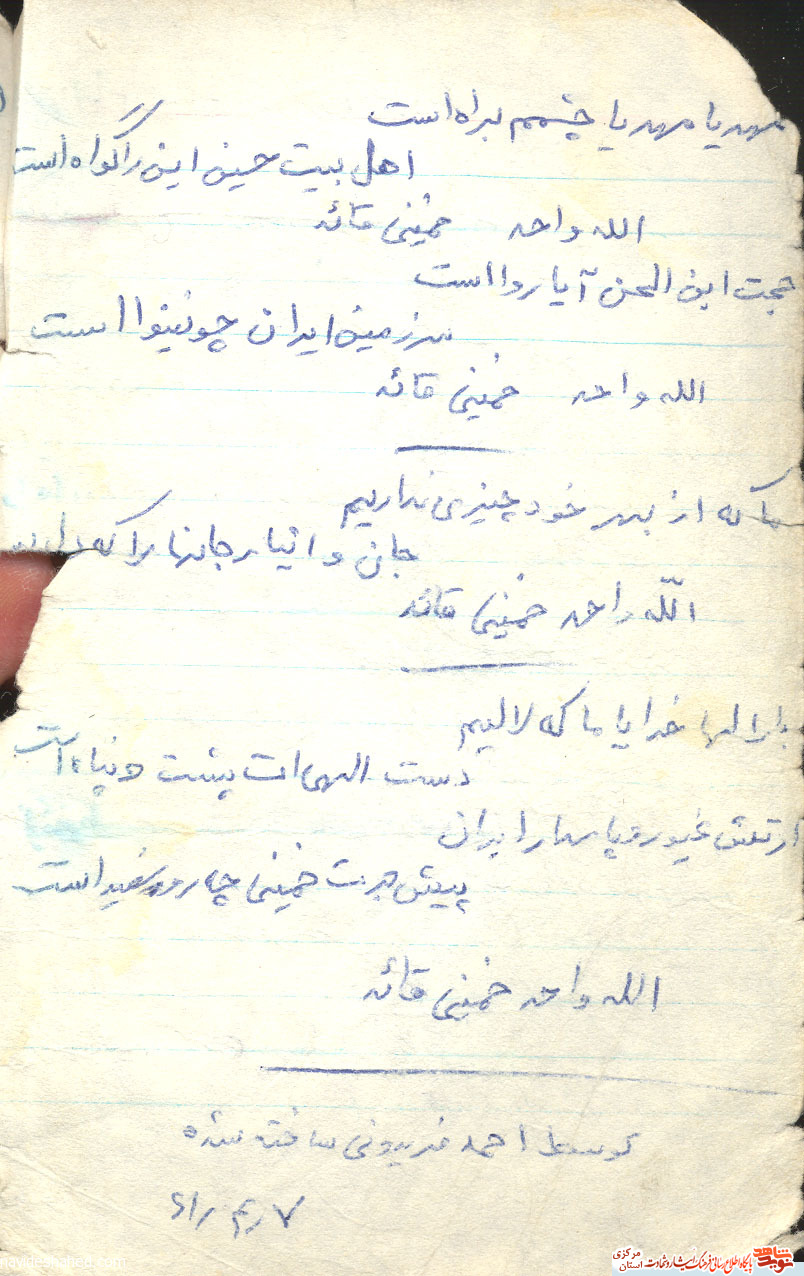 مهدیا مهدیا چشمم براه است
اهل بیت حسین این را گواه است
الله واحد خمینی قائد
حجت ابن الحسن آیا روا است
سرزمین ایران چو نینوا است
الله واحد خمینی قائد
ما که از بهر خود چیزی نداریم
جان و انیار جانها را که
الله واحد خمینی قائد
بارالها خدایا ما که لالیم
دست الهی ات پشت و پناه است
ارتش غیور و پاسدار ایران
پیش خمینی چه رو سفید است
الله واحد خمینی قائد
توسط احمد فریدونی ساخته شده
نوید شاهد
پایگاه اطلاع رسانی فرهنگ ایثار و شهادت
استان مرکزی